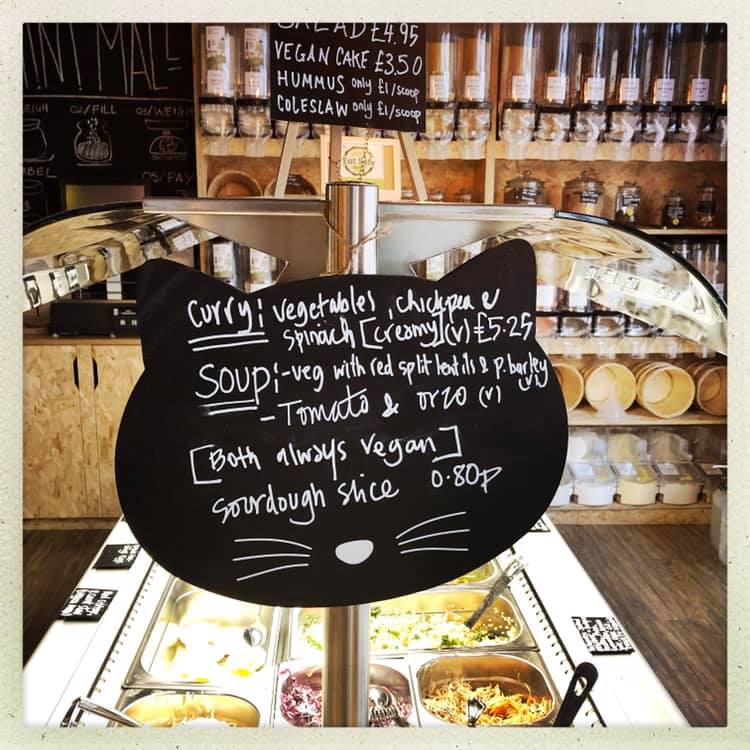 SALAD £4.95
VEGAN CAKE £3.50
HUMMUS only £1/scoop
COLESLAW only £1/scoop
02/FILL
03/WEIGH
05/PAY
Eat Safe
Curry: vegetables, chickpea &
spinach [creamy](v) £5.25
SOUP: -veg with red split lentils & p.barley
(v)
-Tomato & orzo (v)
[Both always vegan]
sourdough slice 0.80p